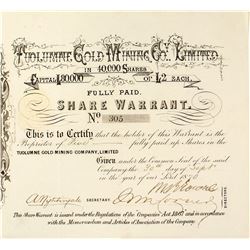 TUOLUMNE GOLD MINING CO. LIMITED
CAPITAL £80,000 IN 40,000 SHARES OF £2 EACH.
FULLY PAID.
SHARE WARRANT.
No 305
This is to Certify that the holder of this Warrant is the
Proprietor of fully paid up Shares in the
TUOLUMNE GOLD MINING COMPANY, LIMITED
Given under the Common Seal of the said
Company the day of Sept
in the year of our Lord
A Nightingale SECRETARY
DIRECTORS
This Share Warrant is issued under the Regulations of the Companies' Act 1867 and in accordance
with the Memorandum and Articles of Association of the Company.